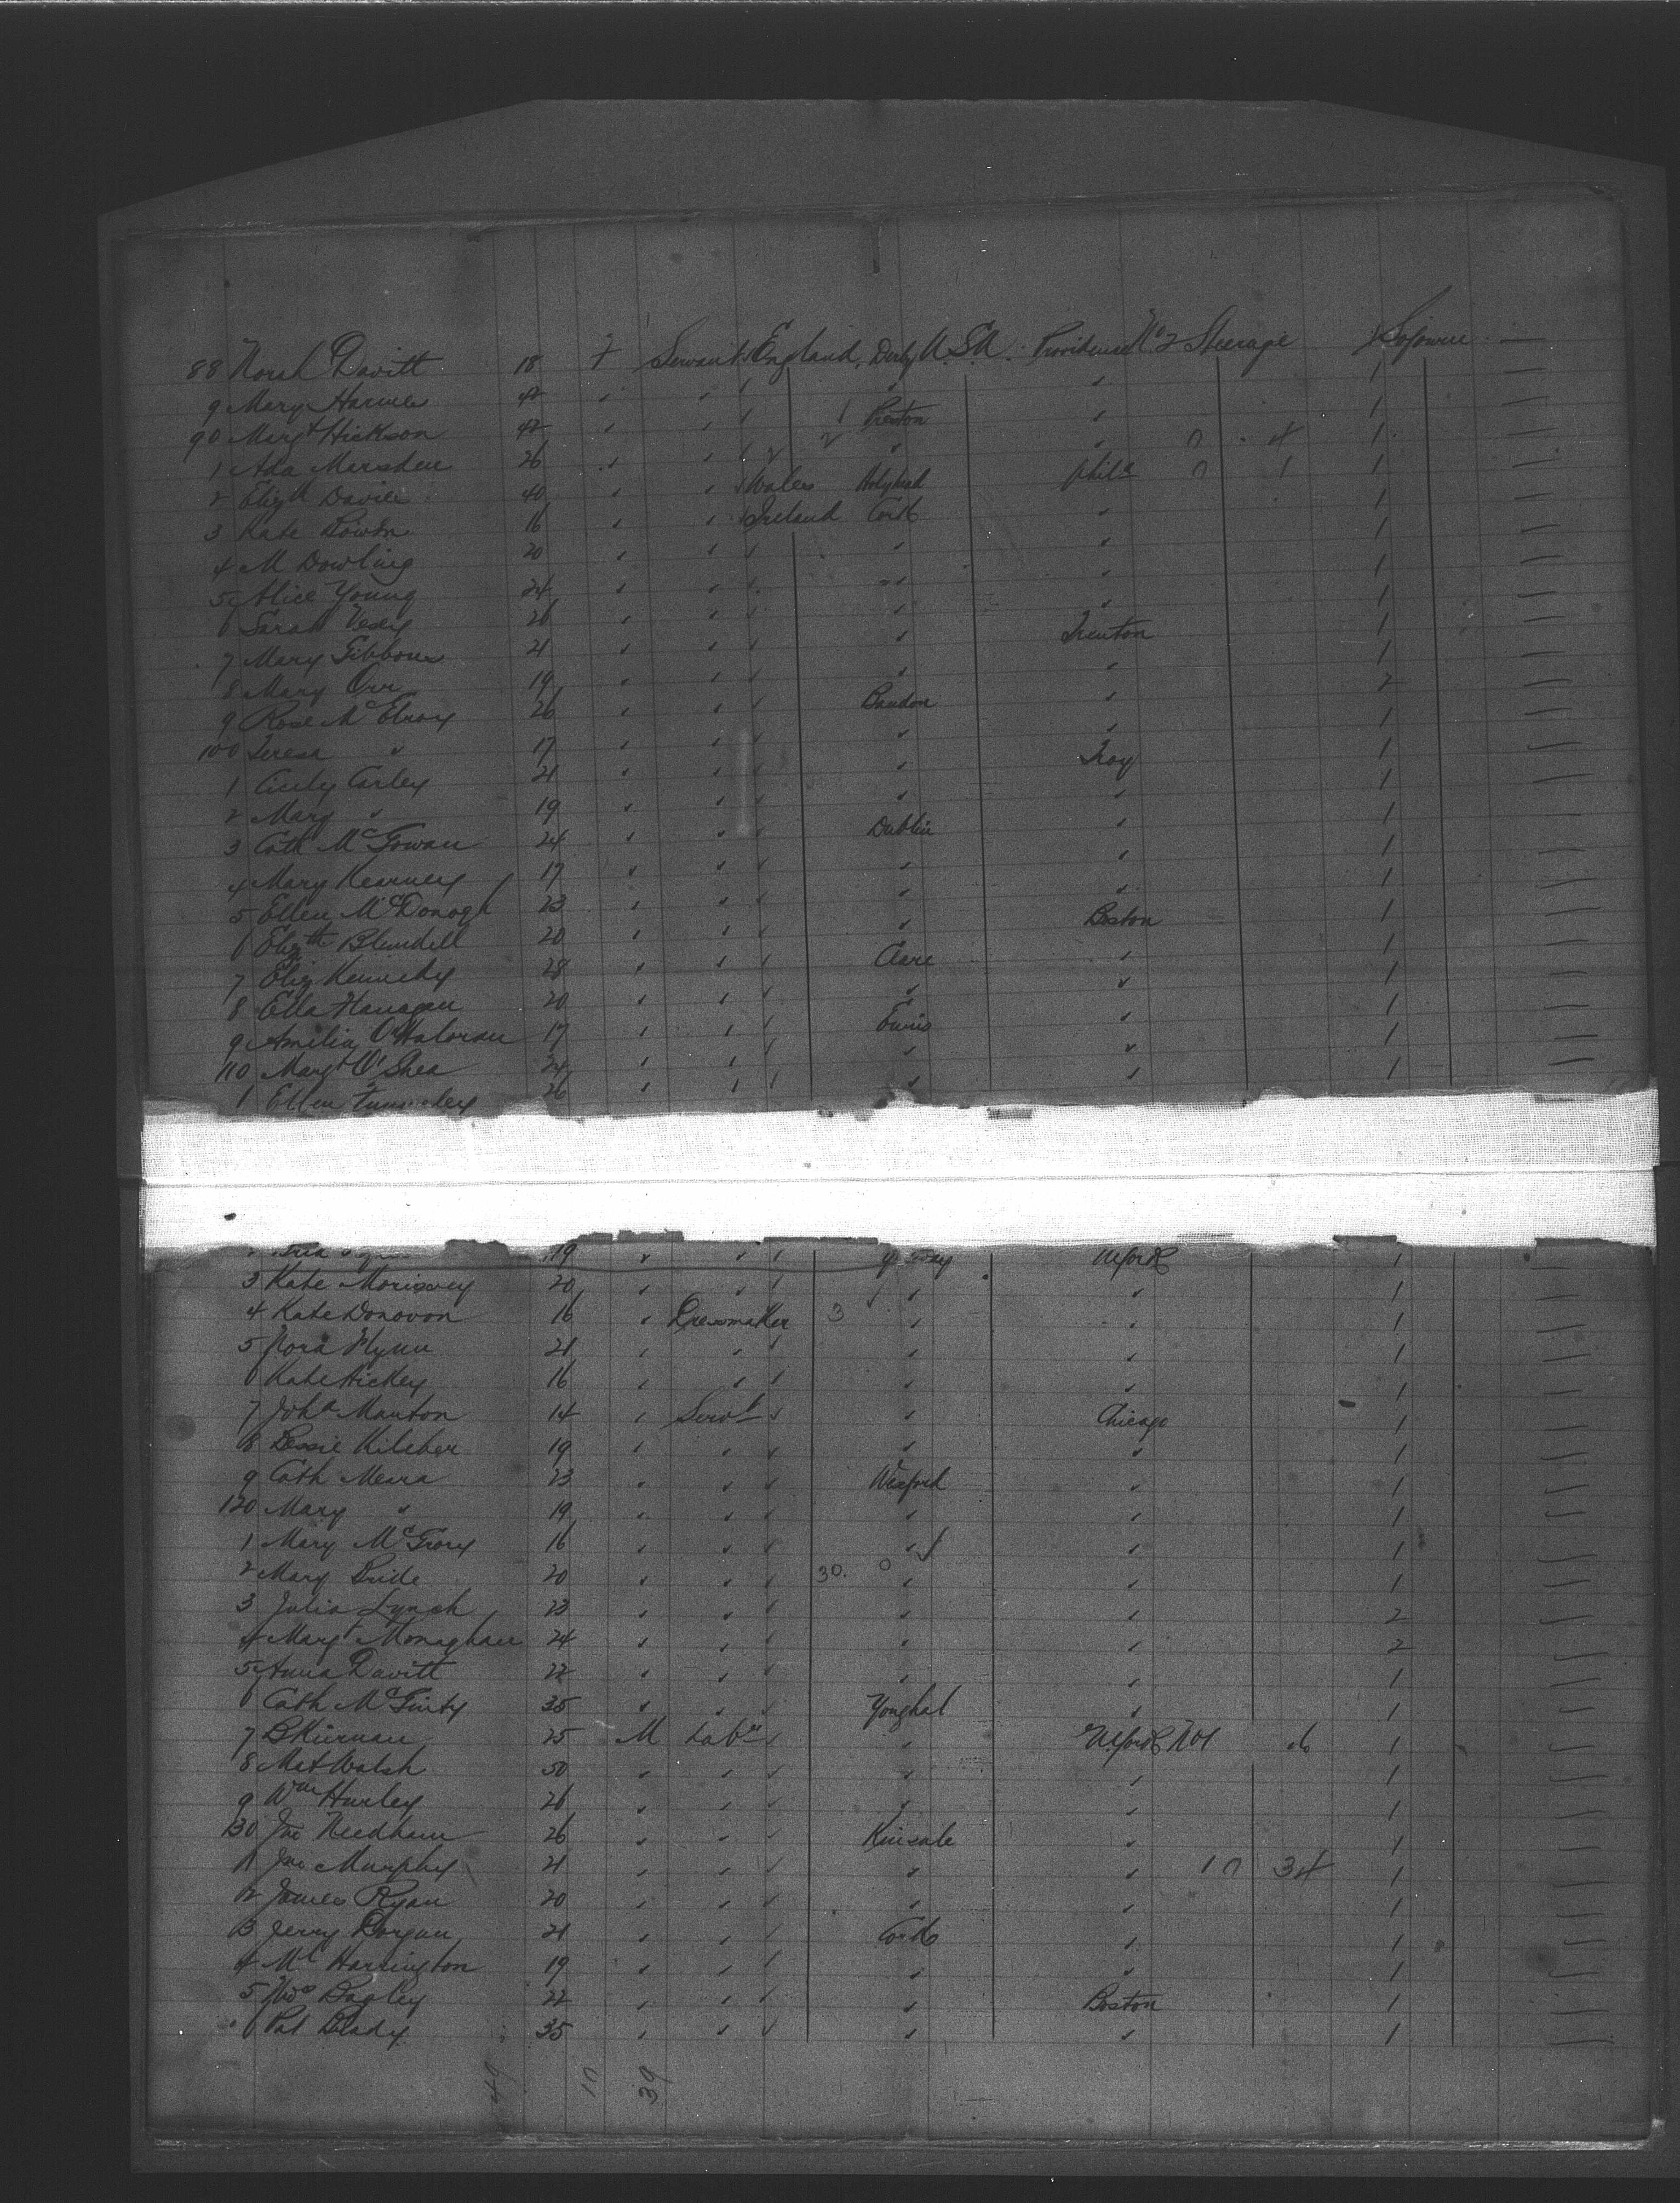 88 Norah Davitt 18 F Servant England Derby U.S.A. Providence No 2 Steerage 1 Sojourn —
9 Mary 42 " " " " " 1 —
90 Margt Hickson 42 " " " 1 Preston " 1 —
1 Ada Marsden 26 " " " " " 1 —
2 Elizth Davies 40 " " Wales Holyhead Phila 1 —
3 Kate Bowen 16 " " Ireland Cork " 1 —
4 M Dowling 20 " " " " " 1 —
5 Alice Young 24 " " " " " 1 —
6 Sarah Vesey 26 " " " " " 1 —
7 Mary Gibbons 21 " " " " Trenton 1 —
8 Mary Orr 19 " " " " " 2 —
9 Rose McElroy 26 " " " Bandon " 1 —
100 Teresa " 17 " " " " " 1 —
1 Cicely Carley 21 " " " " Troy 1 —
2 Mary " 19 " " " " " 1 —
3 Cath McGowan 24 " " " Dublin " 1 —
4 Mary Kearney 17 " " " " " 1 —
5 Ellen McDonogh 23 " " " " " 1 —
6 Elizth Blundell 20 " " " " Boston 1 —
7 Eliz Kennedy 28 " " " Clare " 1 —
8 Ella Flanagan 20 " " " " " 1 —
9 Amilia O'Haloran 17 " " " Ennis " 1 —
110 Margt O'Shea 24 " " " " " 1 —
1 Ellen 26 " " " " " 1 —
19 " " " NYork 1 —
3 Kate Morissey 20 " " " " " 1 —
4 Kate Donovon 16 " Dressmaker 3 " " 1 —
5 Nora Flynn 21 " " " " " 1 —
6 Kate Hickey 16 " " " " " 1 —
7 Joha Manton 14 " Servt " " Chicago 1 —
8 Bessie Kileher 19 " " " " " 1 —
9 Cath Meara 23 " " " Wexford " 1 —
120 Mary " 19 " " " " " 1 —
1 Mary McGrory 16 " " " " " 1 —
2 Mary Bride 20 " " " 30. 0 " " 1 —
3 Julia Lynch 23 " " " " " 2 —
4 Margt Monaghan 24 " " " " " 2 —
5 Anna Davitt 22 " " " " " 1 —
6 Cath McGinty 35 " " " Yonghal " 1 —
7 B Kiernan 25 M Labr " " NYork No1 do 1 —
8 Mat Walsh 50 " " " " " 1 —
9 Wm Hurley 26 " " " " " 1 —
130 Jno Needham 26 " " " Kinsale " 1 —
1 Jno Murphy 21 " " " " " 1 —
2 James Ryan 20 " " " " " 1 —
3 Jerry Dorgan 21 " " " Cork " 1 —
4 Ml Harrington 19 " " " " " 1 —
5 Thos Bagley 22 " " " " Boston 1 —
6 Pat Deady 35 " " " " " 1 —
49 10 39